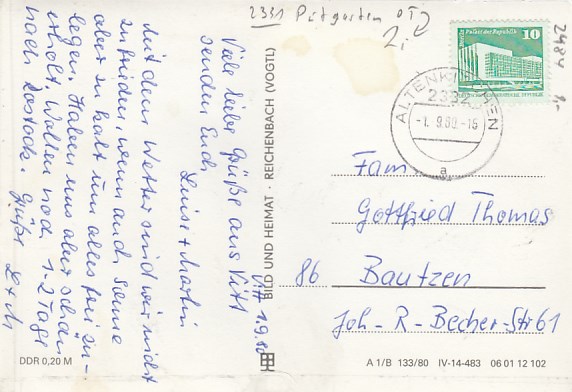 2331 Putgarten OT
2,-
2484
1,-
Palast der Republik
10
ALTENKIRCHEN
2332
-1. 9.80.-16
a
Vitt 1.9.80
Viele liebe Grüße aus Vitt
senden Euch
Luise + Martin
Mit dem Wetter sind wir nicht
zufrieden, wenn auch Sonne
aber zu kalt um alles frei zu
legen. Haben uns aber schon
erholt. Wollen noch 1-2 Tage
nach Rostock. Grüße L + M
BILD UND HEIMAT · REICHENBACH (VOGTL)
Fam.
Gottfried Thomas
86 Bautzen
Joh.-R-Becher-Str 61
DDR 0,20 M
A 1/B 133/80 IV-14-483 06 01 12 102